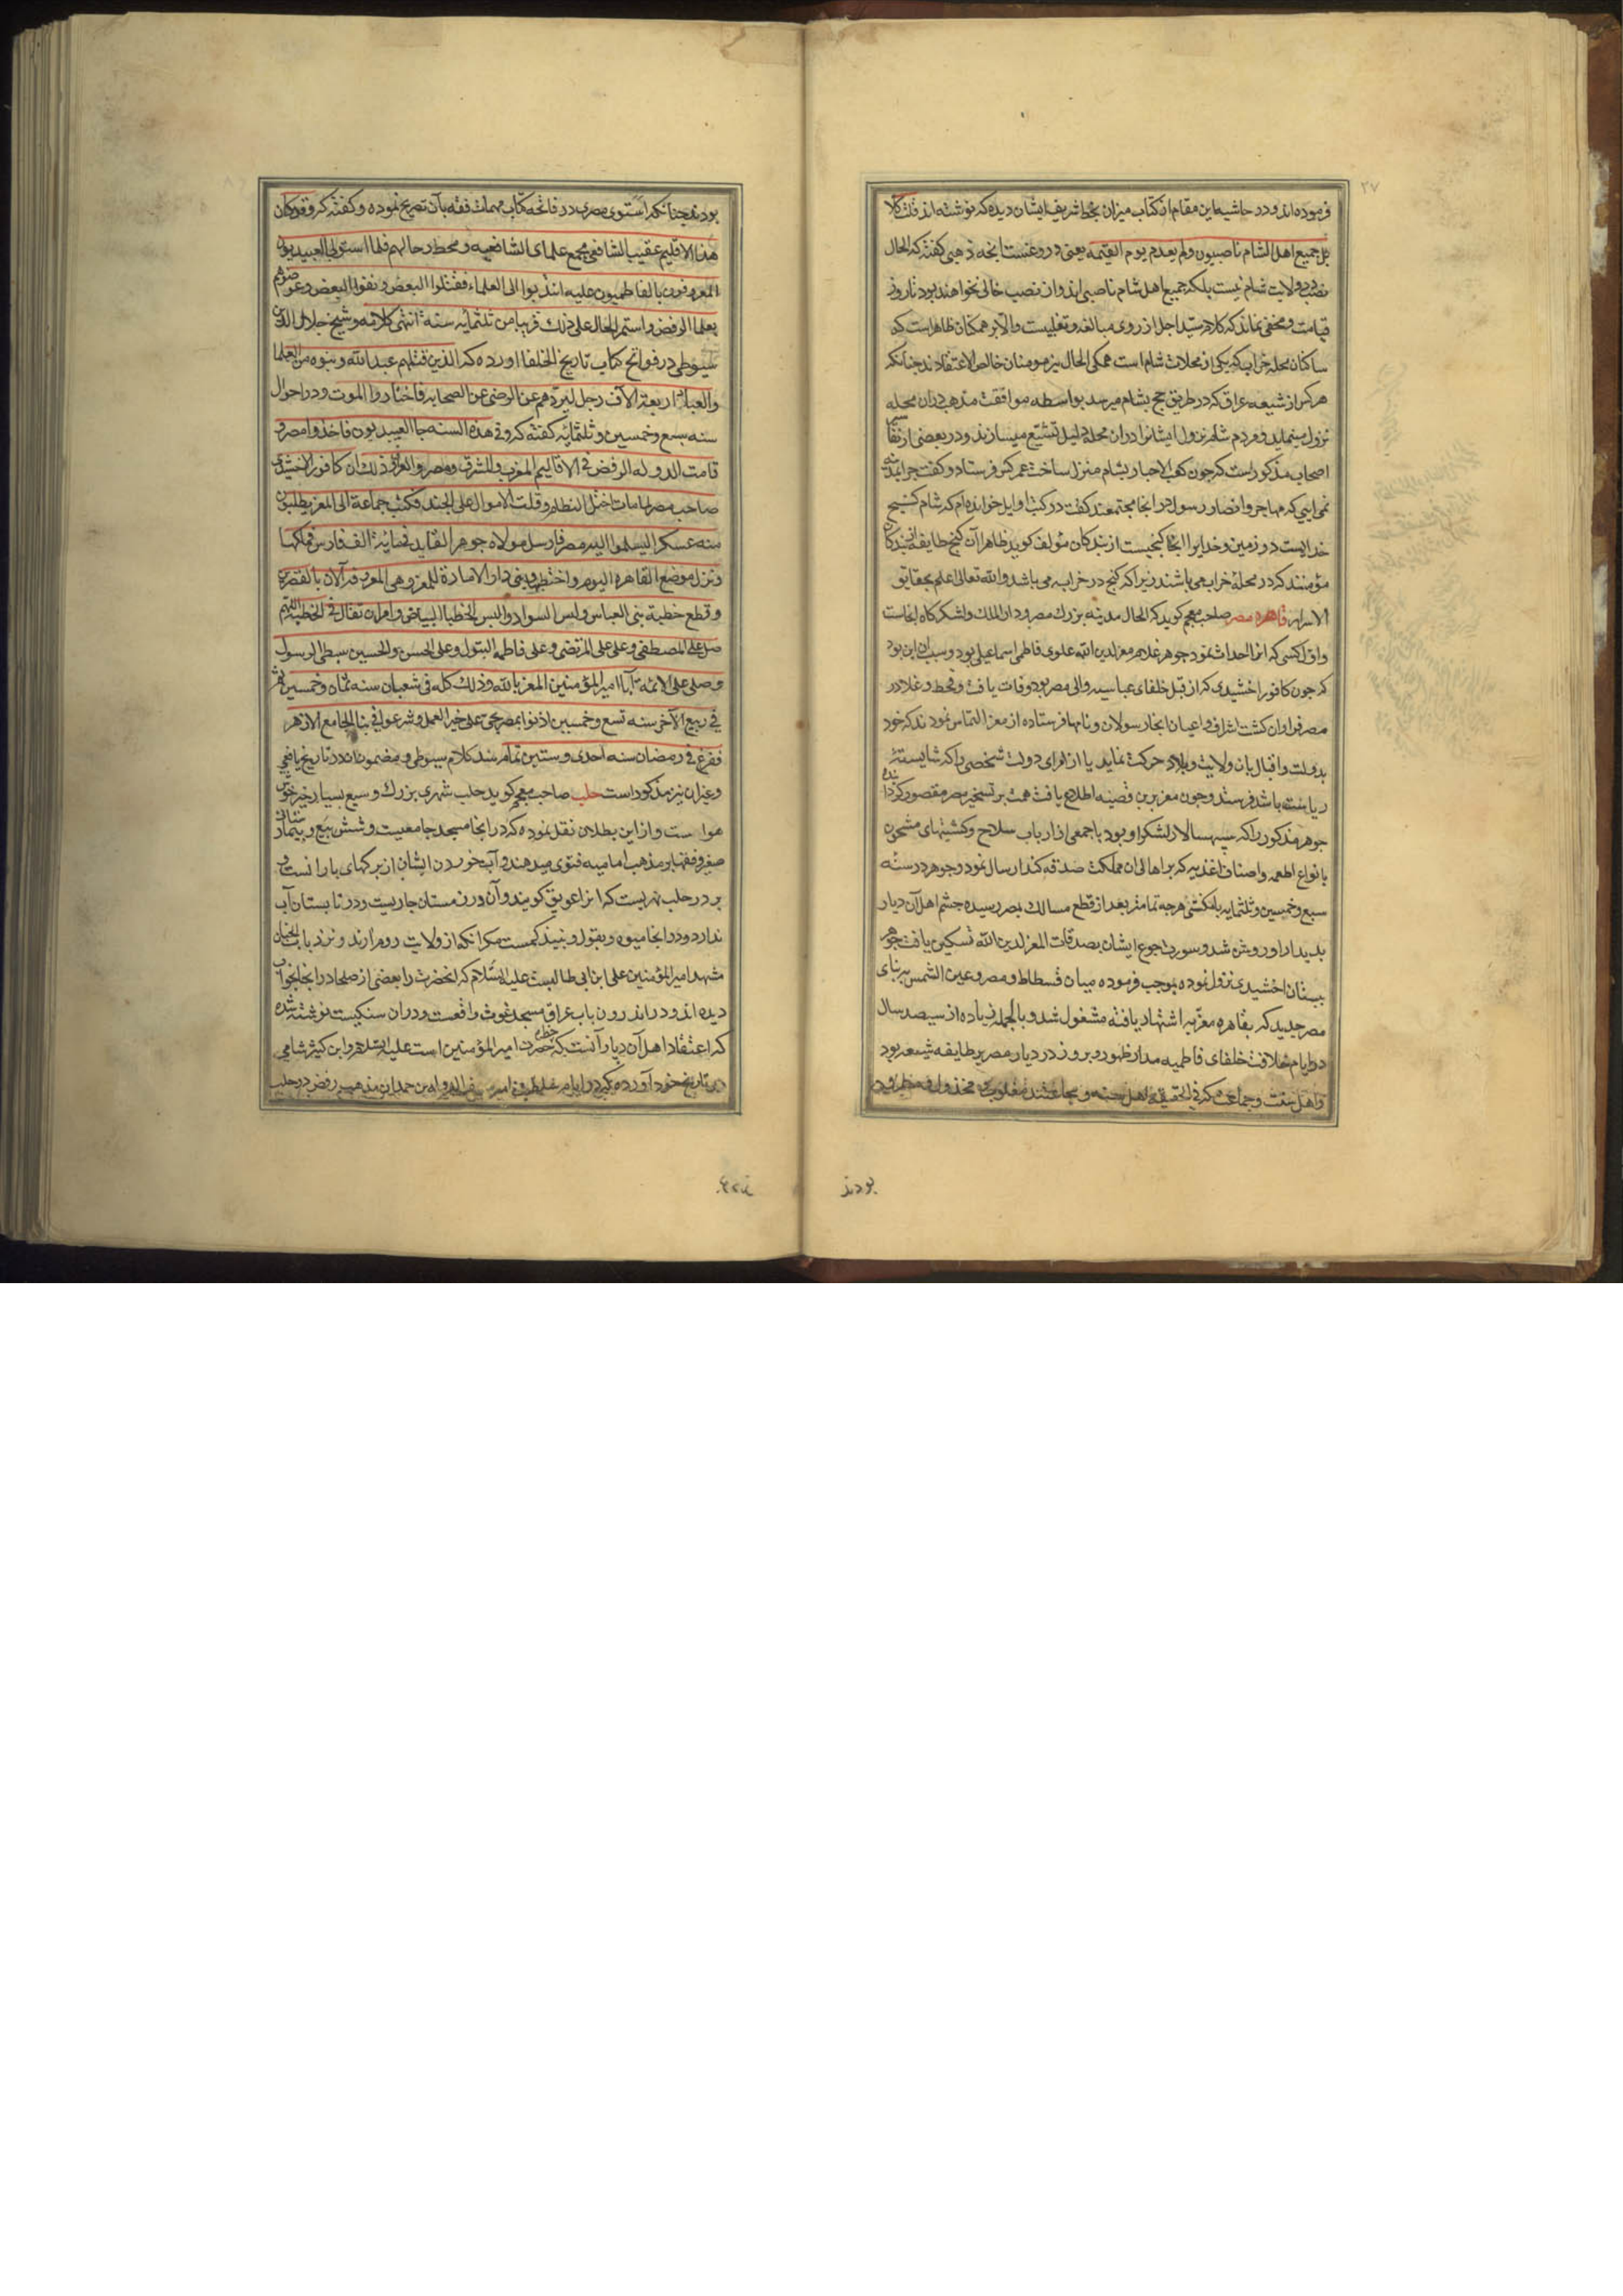 ۲۷
فرموده‌اند و در حاشیه این مقام از کتاب میزان بخط شریف ایشان دیده که نوشته‌اند قلت کلا
بل جمیع اهل الشام ناصبیون ولم یعدم یوم القیمه یعنی دروغست آنچه ذهبی گفته که الحال
نصب در ولایت شام نیست بلکه جمیع اهل شام ناصبی اند و از نصب خالی نخواهند بود تا روز
قیامت و مخفی نماند که کلام سید اجل از روی مبالغه و تغلیبست والا بر همکنان ظاهر است که
ساکنان محله خراب که یکی از محلات شام است همکی الحال نیز مومنان خالص الاعتقادند چنانکه
هر کس از شیعه عراق که در طریق حج بشام میرسد بواسطه موافقت مذهب در آن محله
نزول مینماید و مردم شام نزول ایشانرا در ان محله دلیل تشیع میسازند و در بعضی از
اصحاب مذکور است که چون کعب الاحبار بشام منزل ساخت عمر کس فرستاد و گفت چرا بمدینه
نمی ایی که مهاجر و انصار رسول در انجا مجتمعند گفت در کتب اوایل خوانده‌ام که شام گنج
خداست در زمین و خدایرا انجا گنجیست از بندکان مؤلف کوید ظاهرا آن گنج طایفه از بندکان
مؤمنند که در محله خراب می باشند زیرا که گنج در خرابه می باشد والله تعالی اعلم بحقایق
الاسرار قاهره مصر صاحب معجم کوید که الحال مدینه بزرک مصر و دار الملک و لشکرکاه انجاست
و اول کسی که انرا احداث نمود جوهر غلام معز لدین الله علوی فاطمی اسماعیلی بود و سبب ان این بود
که چون کافور اخشیدی که از قبل خلفای عباسیه والی مصر بود وفات یافت و قحط و غلا در
مصر فراوان کشت اشراف و اعیان انجا رسولان و نامها فرستاده از معز التماس نمودند که خود
بدولت و اقبال بان ولایت و بلاد حرکت نماید یا از امرای دولت شخصی را که شایسته
ریاست باشد فرستد و چون معز برین قضیه اطلاع یافت همت بر تسخیر مصر مقصور کردانیده
جوهر مذکور را که سپهسالار لشکر او بود با جمعی از ارباب سلاح و کشتیهای مشحون
بانواع اطعمه و اصناف اغذیه که بر اهالی ان مملکت صدقه کند ارسال نمود و جوهر در سنه
سبع و خمسین و ثلثمایه بلنکشی هرچه تمامتر بعد از قطع مسالک بمصر رسیده چشم اهل آن دیار
بدیدار او روشن شد و سورت جوع ایشان بصدقات المعز لدین الله تسکین یافت جوهر
ببستان اخشیدی نزول نموده بموجب فرموده میان فسطاط و مصر و عین الشمس بر بنای
مصر جدید که بقاهره معزیه اشتهار یافته مشغول شد و بالجمله زیاده از سیصد سال
در ایام خلافت خلفای فاطمیه مدار ظهور و بروز در دیار مصر بر طایفه شیعه بود
و اهل سنت و جماعت که فی الحقیقه اهل سنه و مجاعتند مغلوب و مخذول و مطرود
بودند
بودند چنانکه اسنوی مصری در فاتحه کتاب مهمات فقه بآن تصریح نموده و گفته که و قد کان
هذا الاقلیم عقیب الشافعی مجمع علمای الشافعیه و محط رحالهم فلما استولی العبیدیون
المعروفون بالفاطمیون علیه انتدبوا الی العلماء فقتلوا البعض و نفوا البعض و عوضوهم
بعلما الرفض و استمر الحال علی ذلک قریبا من ثلثمایه سنة انتهی کلامه و شیخ جلال الدین
سیوطی در فواتح کتاب تاریخ الخلفا اورده که الذین قتلهم عبد الله و بنوه من العلما
والعباد اربعة الآف رجل لیردهم عن الرضی عن الصحابه فاختاروا الموت و در احوال
سنه سبع و خمسین و ثلثمائه کفته که و فی هذه السنه جا العبیدیون فاخذوا مصر و
قامت الدوله الرفض فی الاقالیم المغرب و المشرق و مصر و العراق و ذلک ان کافور الاخشیدی
صاحب مصر لما مات اختل النظام و قلت الاموال علی الجند فکتب جماعة الی المعز یطلبون
منه عسکرا لیسلموا الیه مصر فارسل مولاه جوهر القاید فی مایة الف فارس فملکها
و نزل موضع القاهره الیوم و اختطها و بنی دار الامارة للمعز و هی المعروفه الان بالقصرین
و قطع خطبة بنی العباس و لبس السواد و البس الخطبا البیاض و امر ان تقال فی الخطبه اللهم
صل علی المصطفی و علی علی المرتضی و علی فاطمه البتول و علی الحسن و الحسین سبطی الرسول
و صلی علی الائمه آبا امیر المؤمنین المعز بالله و ذلک کله فی شعبان سنه ثمان و خمسین ثم
فی ربیع الآخر سنه تسع و خمسین اذنوا بمصر بحی علی خیر العمل و شرعوا فی بنا الجامع الازهر
ففرغ فی رمضان سنه احدی و ستین تمام شد کلام سیوطی و مضمون ان در تاریخ یافعی
و غیران نیز مذکور است حلب صاحب معجم کوید حلب شهری بزرک و سیع بسیار خیر خوش
هواست و از ابن بطلان نقل نموده که در انجا مسجد جامعیست و شش بیع و بیمارستان
صغیر و فقها بر مذهب امامیه فتوی میدهند و آب خوردن ایشان از برکهای بارانست و
بر در حلب نهریست که انرا عویق کویند و آن در زمستان جاریست و در تابستان آب
ندارد و در انجا میوه و بقول و نبیذ کمست مکر انکه از ولایت روم ارند و نزد باب الجنان
مشهد امیر المؤمنین علی ابن ابی طالبست علیه السلام که انحضرت را بعضی از صلحا در انجا بخواب
دیده اند و در اندرون باب عراق مسجد غوث واقعست و در ان سنکیست نوشته شده
که اعتقاد اهل آن دیار آنست که خط حضرت امیر المؤمنین است علیه السلام و ابن کثیر شامی
در تاریخ خود آورده که در ایام سلطنت امیر سیف الدوله بن حمدان مذهب رفض در حلب